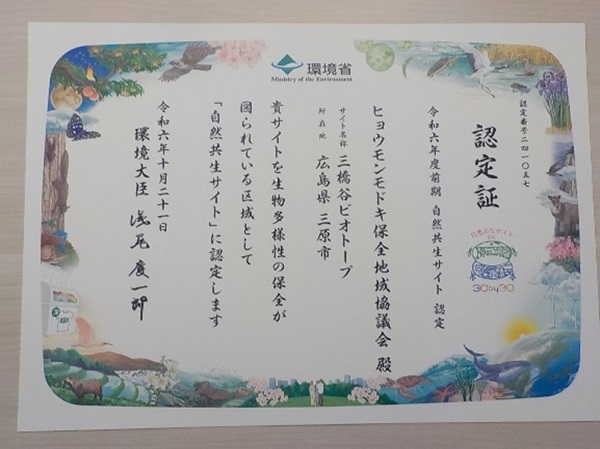 環境省
Ministry of the Environment
認定番号二四一〇五七
認定証
自然共生サイト
30by30
令和六年度前期 自然共生サイト 認定
ヒョウモンモドキ保全地域協議会 殿
サイト名称 三橋谷ビオトープ
所在地 広島県 三原市
貴サイトを生物多様性の保全が
図られている区域として
「自然共生サイト」に認定します
令和六年十月二十一日
環境大臣 浅尾 慶一郎